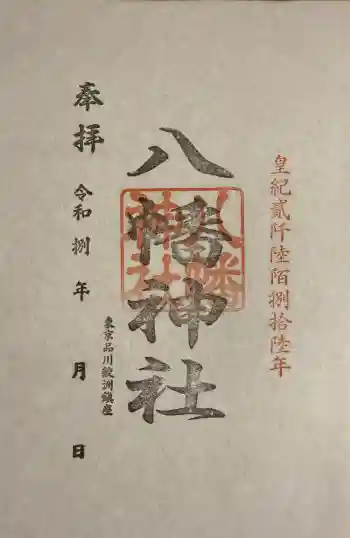 皇紀貳阡陸陌捌拾陸年
八幡神社
八幡
神社
東京品川鮫洲鎮座
奉拝
令和捌年 月 日